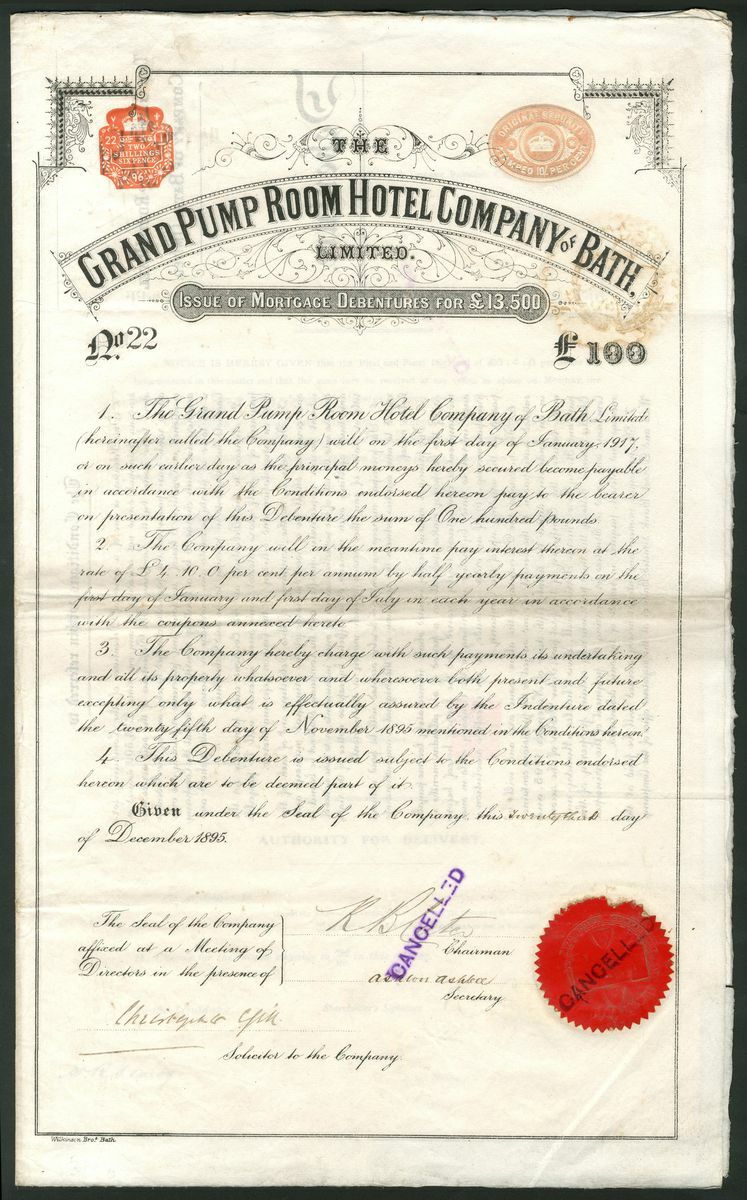 22 1
TWO
SHILLINGS
SIX PENCE
96
THE
GRAND PUMP ROOM HOTEL COMPANY OF BATH,
LIMITED.
ISSUE OF MORTGAGE DEBENTURES FOR £13,500
No. 22
£100
1. The Grand Pump Room Hotel Company of Bath Limited
(hereinafter called the Company) will on the first day of January, 1917,
or on such earlier day as the principal moneys hereby secured become payable
in accordance with the Conditions endorsed hereon pay to the bearer
on presentation of this Debenture the sum of One hundred pounds
2. The Company will in the meantime pay interest thereon at the
rate of £4. 10. 0 per cent per annum by half yearly payments on the
first day of January and first day of July in each year in accordance
with the coupons annexed hereto
3. The Company hereby charge with such payments its undertaking
and all its property whatsoever and wheresoever both present and future
excepting only what is effectually assured by the Indenture dated
the twenty fifth day of November 1895 mentioned in the Conditions hereon.
4. This Debenture is issued subject to the Conditions endorsed
hereon which are to be deemed part of it.
Given under the Seal of the Company this twenty third day
of December 1895.
AUTHORITY FOR DELIVERY.
The Seal of the Company
affixed at a Meeting of
Directors in the presence of
Chairman
CANCELLED
Secretary
CANCELLED
Solicitor to the Company.
Wilkinson Bros. Bath.